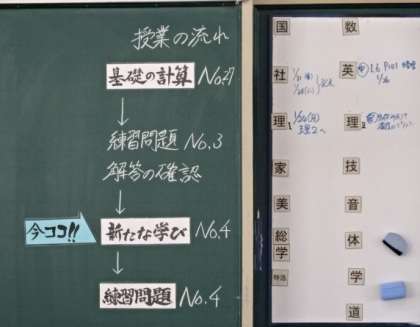 授業の流れ
基礎の計算 No.27
↓
練習問題 No.3
解答の確認
↓
今ココ!! 新たな学び No.4
↓
練習問題 No.4
国 数
社 英
理 理
家 技
美 音
総学 体
特活 学
道